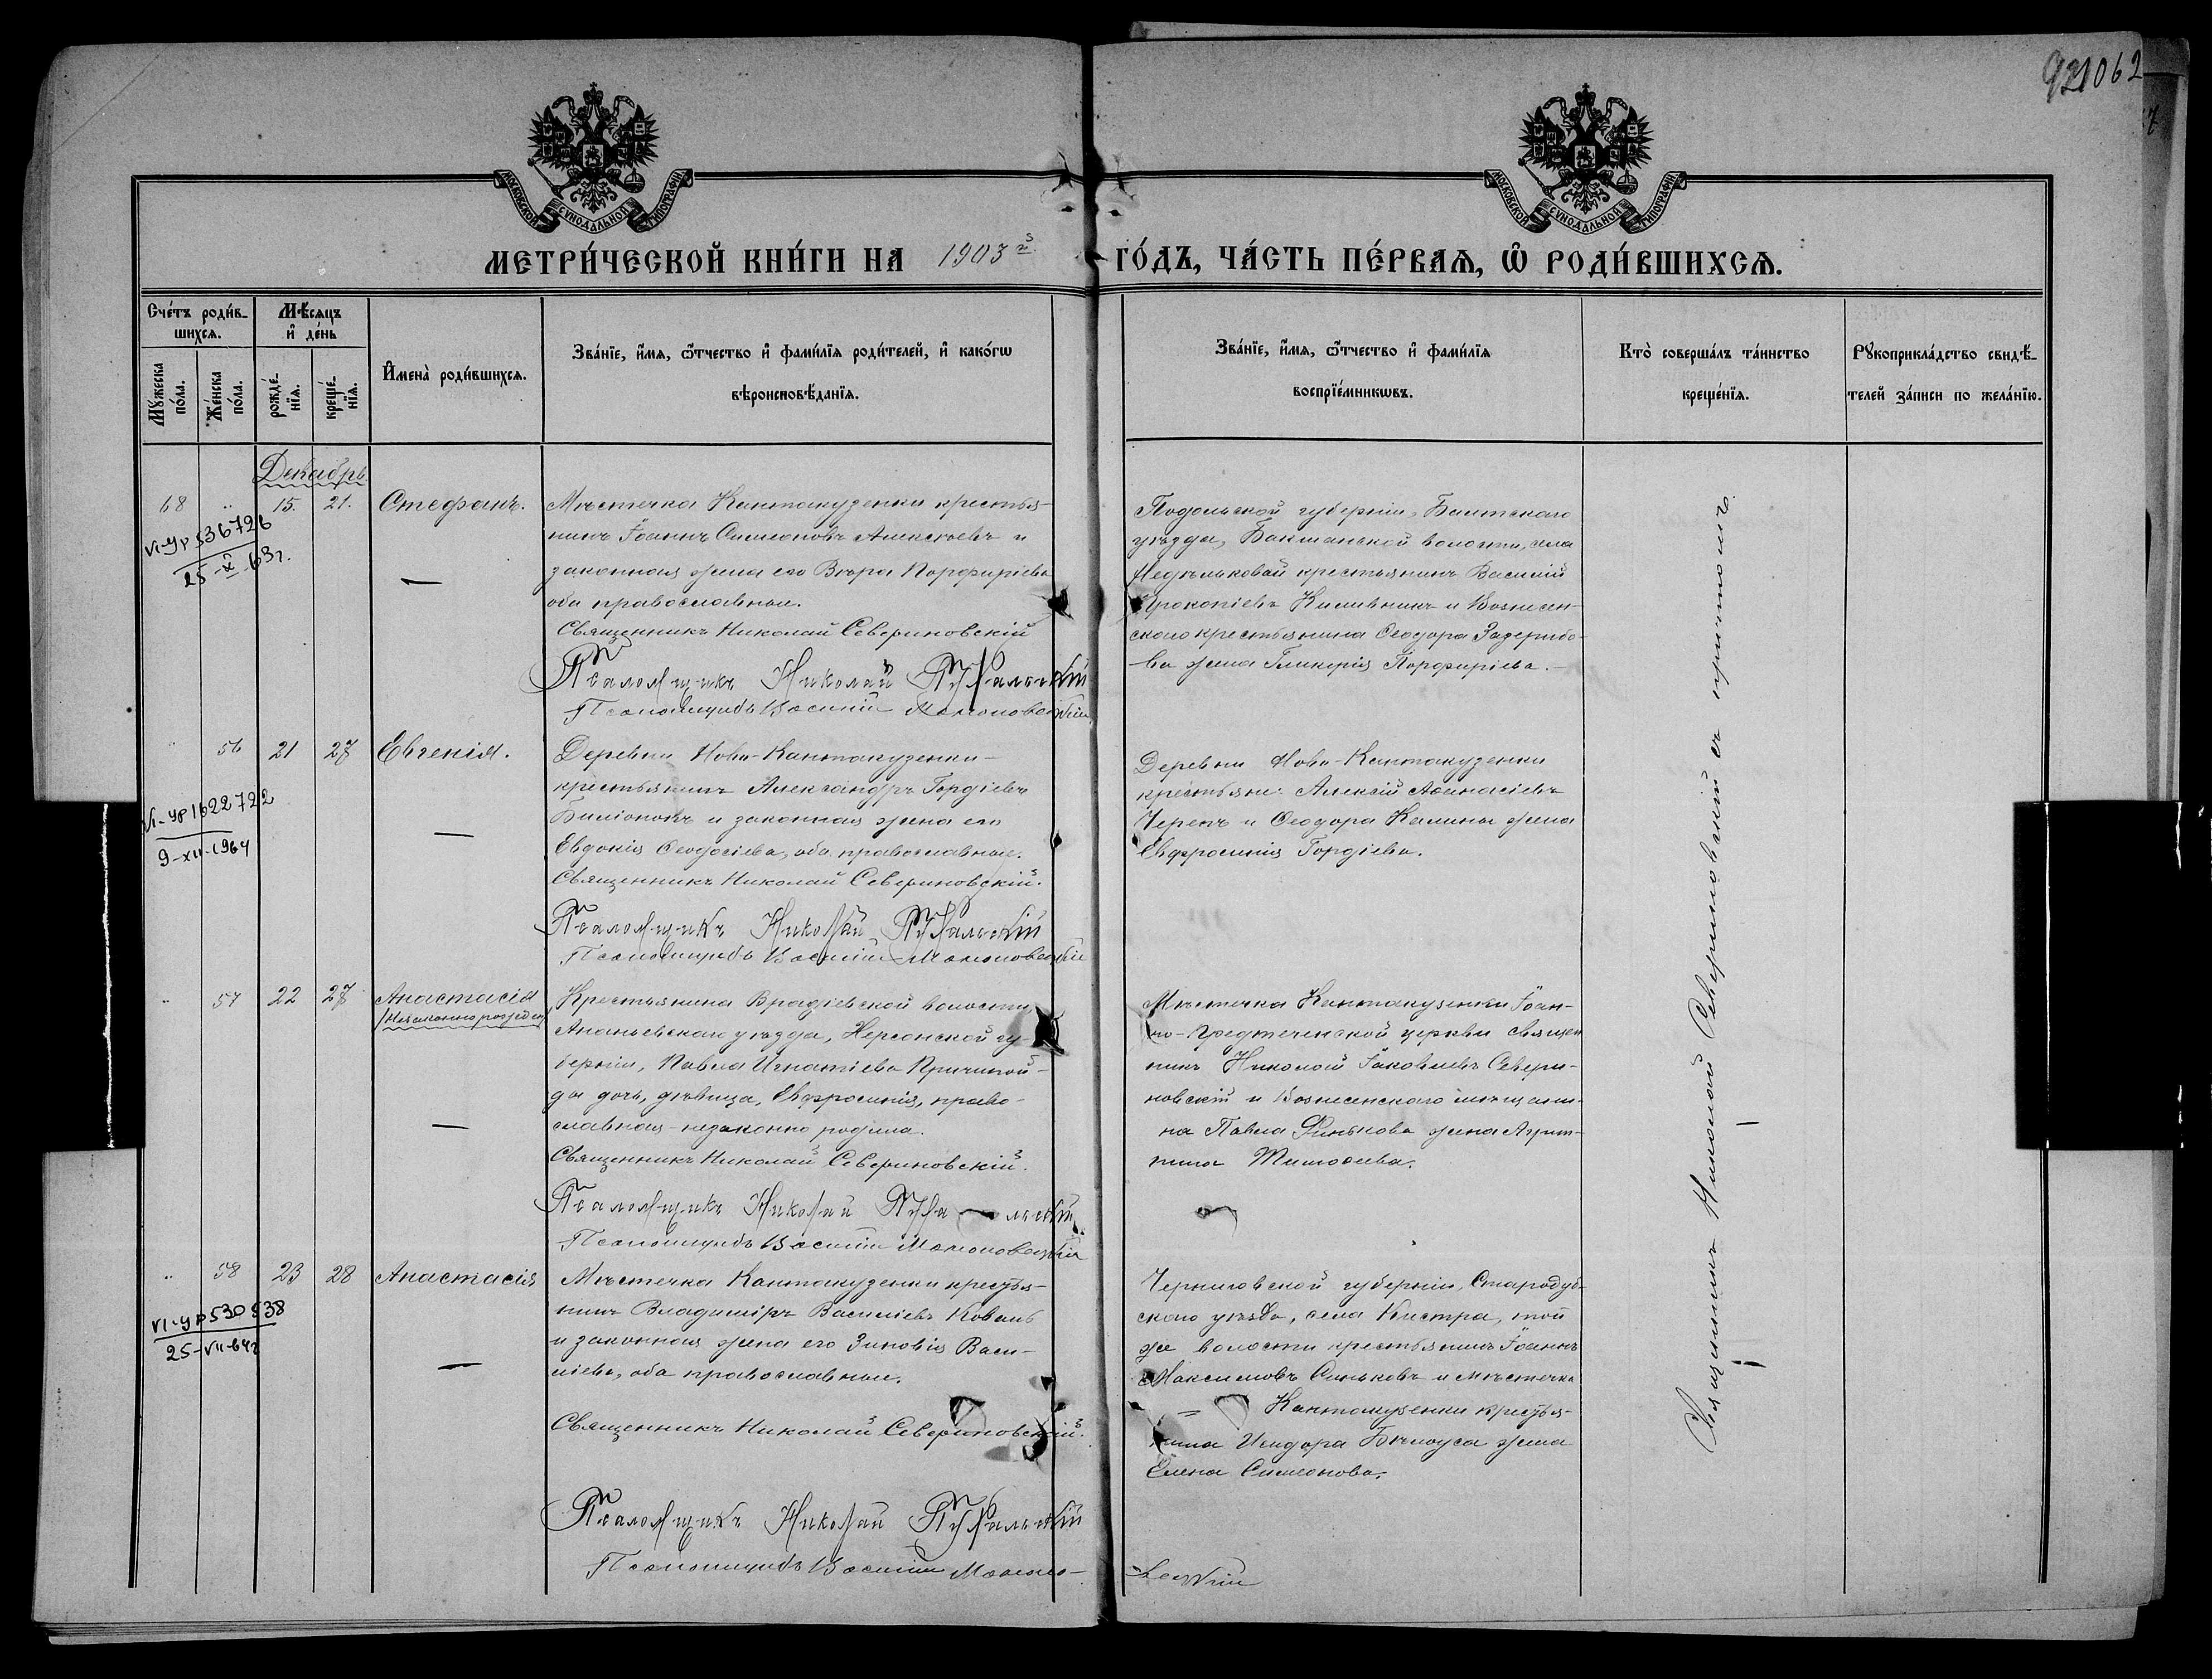 921062
МОСКОВСКОЙ СѴНОДАЛЬНОЙ ТИПОГРАФІИ
МОСКОВСКОЙ СѴНОДАЛЬНОЙ ТИПОГРАФІИ
МЕТРИ́ЧЕСКОЙ КНИ́ГИ НА 1903 й ГО́ДЪ, ЧА́СТЬ ПЕ́РВАѦ, Ѽ РОДИ́ВШИХСѦ.
Сче́тъ роди́в-
шихсѧ.
Мꙋ́жеска по́ла.
Же́нска по́ла.
Мѣ́сѧцъ
и҆ де́нь
рожде́-
нїѧ.
креще́-
нїѧ.
И҆мена̀ роди́вшихсѧ.
Зва́нїе, и҆́мѧ, ѻ҆́тчество и҆ фами́лїѧ роди́телей, и҆ како́гѡ
вѣроисповѣ́данїѧ.
Зва́нїе, и҆́мѧ, ѻ҆́тчество и҆ фами́лїѧ
воспрїе́мникѡвъ.
Кто̀ соверша́лъ та́инство
креще́нїѧ.
Рꙋкоприкла́дство свидѣ́-
телей за́писи по жела́нїю.
Декабрь
68 " 15. 21. Стефанъ.
VI-УР 536726
25-X-63г.
Мѣстечка Кантакузенки крестья-
нинъ Іоаннъ Симеоновъ Алексѣевъ и
законная жена его Вѣра Порфиріева
оба православные.
Священникъ Николай Севериновскій
Псаломщикъ Николай
Псаломщикъ Василій
Подольской губерніи, Балтскаго
уѣзда, Бакшанской волости, села
крестьянинъ Василій
Прокопіевъ и Вознесен-
скаго крестьянина Ѳеодора Задерибо-
ва жена Гликерія Порфиріева.
" 56 21 27 Евгенія.
VI-УР 1622722
9-XII-1964
Деревни Ново-Кантакузенки
крестьянинъ Александръ Гордіевъ
и законная жена его
Евдокія Ѳеодосіева, оба православные.
Священникъ Николай Севериновскій.
Псаломщикъ Николай
Псаломщикъ Василій
Деревни Ново-Кантакузенки
крестьяни: Алексій Аѳанасіевъ
Черепъ и Ѳеодора Калины жена
Евфросинія Гордіева.
" 57 22 27 Анастасія
/Незаконнорожден/
Крестьянина Врадіевской волости,
Ананьевскаго уѣзда, Херсонской гу-
берніи, Павла Игнатіева Причиной-
да дочь, дѣвица, Евфросинія, право-
славная - незаконно родила.
Священникъ Николай Севериновскій.
Псаломщикъ Николай
Псаломщикъ Василій
Мѣстечка Кантакузенки Іоан-
но-Предтеченской церкви священ
никъ Николай Іаковлевъ Севери-
новскій и Вознесенскаго мѣщани-
на Павла Финькова жена Агрип-
пина Тимоѳеева.
" 58 23 28 Анастасія
VI-УР 530538
25-VII-64г
Мѣстечка Кантакузенки крестья-
нинъ Владиміръ Василіевъ Коваль
и законная жена его Зиновія Васи-
ліева, оба православные.
Священникъ Николай Севериновскій.
Псаломщикъ Николай
Псаломщикъ Василій
Черниговской губерніи, Стародуб-
скаго уѣзда, села Кистра, той
же волости крестьянинъ Іоаннъ
Максимовъ Синьковъ и мѣстечка
Кантакузенки крестья-
нина Исидора Бѣлоуса жена
Елена Симеонова.
Священникъ Николай Севериновскій съ причтомъ.